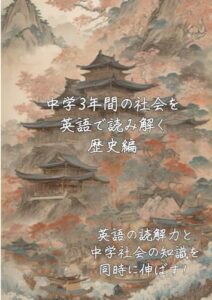 中学3年間の社会を
英語で読み解く
歴史編
英語の読解力と
中学社会の知識を
同時に伸ばす!